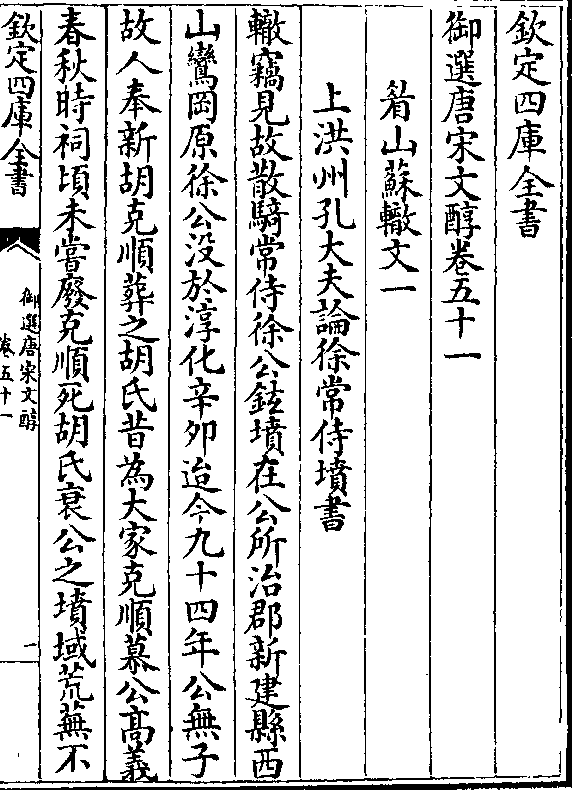 欽定四庫全書
御選唐宋文醇卷五十一
眉山蘇轍文一
上洪州孔大夫論徐常侍墳書
轍竊見故散騎常侍徐公鉉墳在公所治郡新建縣西
山鸞岡原徐公没於淳化辛卯迨今九十四年公無子
故人奉新胡克順葬之胡氏昔為大家克順慕公高義
春秋時祠頃未嘗廢克順死胡氏衰公之墳域荒蕪不
欽定四庫全書
御選唐宋文醇
卷五十一
一